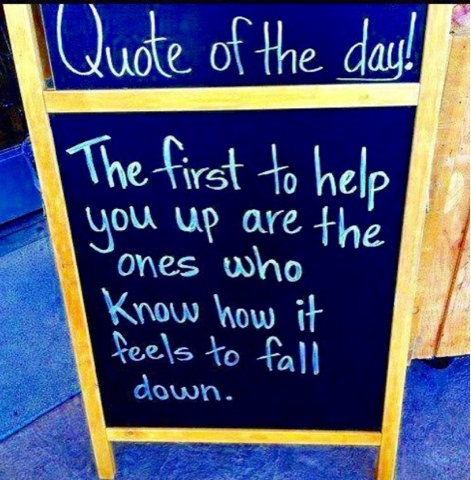 Quote of the day!
The first to help
you up are the
ones who
Know how it
feels to fall
down.